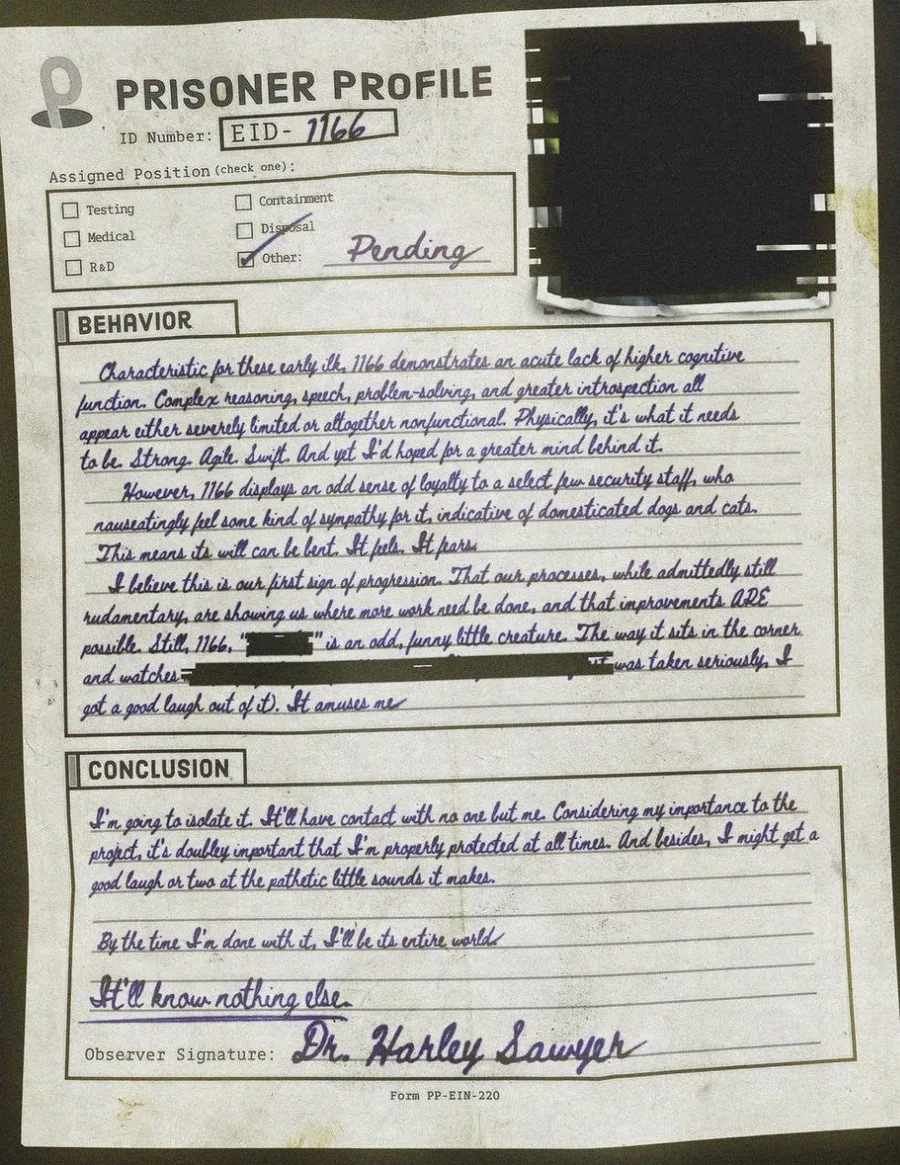 PRISONER PROFILE
ID Number: EID- 1166
Assigned Position (check one):
Testing
Containment
Medical
Disposal
R&D
Other: Pending
BEHAVIOR
Characteristic for these early ilk, 1166 demonstrates an acute lack of higher cognitive
function. Complex reasoning, speech, problem-solving, and greater introspection all
appear either severely limited or altogether nonfunctional. Physically, it's what it needs
to be. Strong. Agile. Swift. And yet I'd hoped for a greater mind behind it.
However, 1166 displays an odd sense of loyalty to a select few security staff, who
nauseatingly feel some kind of sympathy for it, indicative of domesticated dogs and cats.
This means its will can be bent. It feels. It fears.
I believe this is our first sign of progression. That our processes, while admittedly still
rudamentary, are showing us where more work need be done, and that improvements ARE
possible. Still, 1166, "" is an odd, funny little creature. The way it sits in the corner
and watches was taken seriously, I
got a good laugh out of it). It amuses me
CONCLUSION
I'm going to isolate it. It'll have contact with no one but me. Considering my importance to the
project, it's doubley important that I'm properly protected at all times. And besides, I might get a
good laugh or two at the pathetic little sounds it makes.
By the time I'm done with it, I'll be its entire world.
It'll know nothing else.
Observer Signature: Dr. Harley Sawyer
Form PP-EIN-220